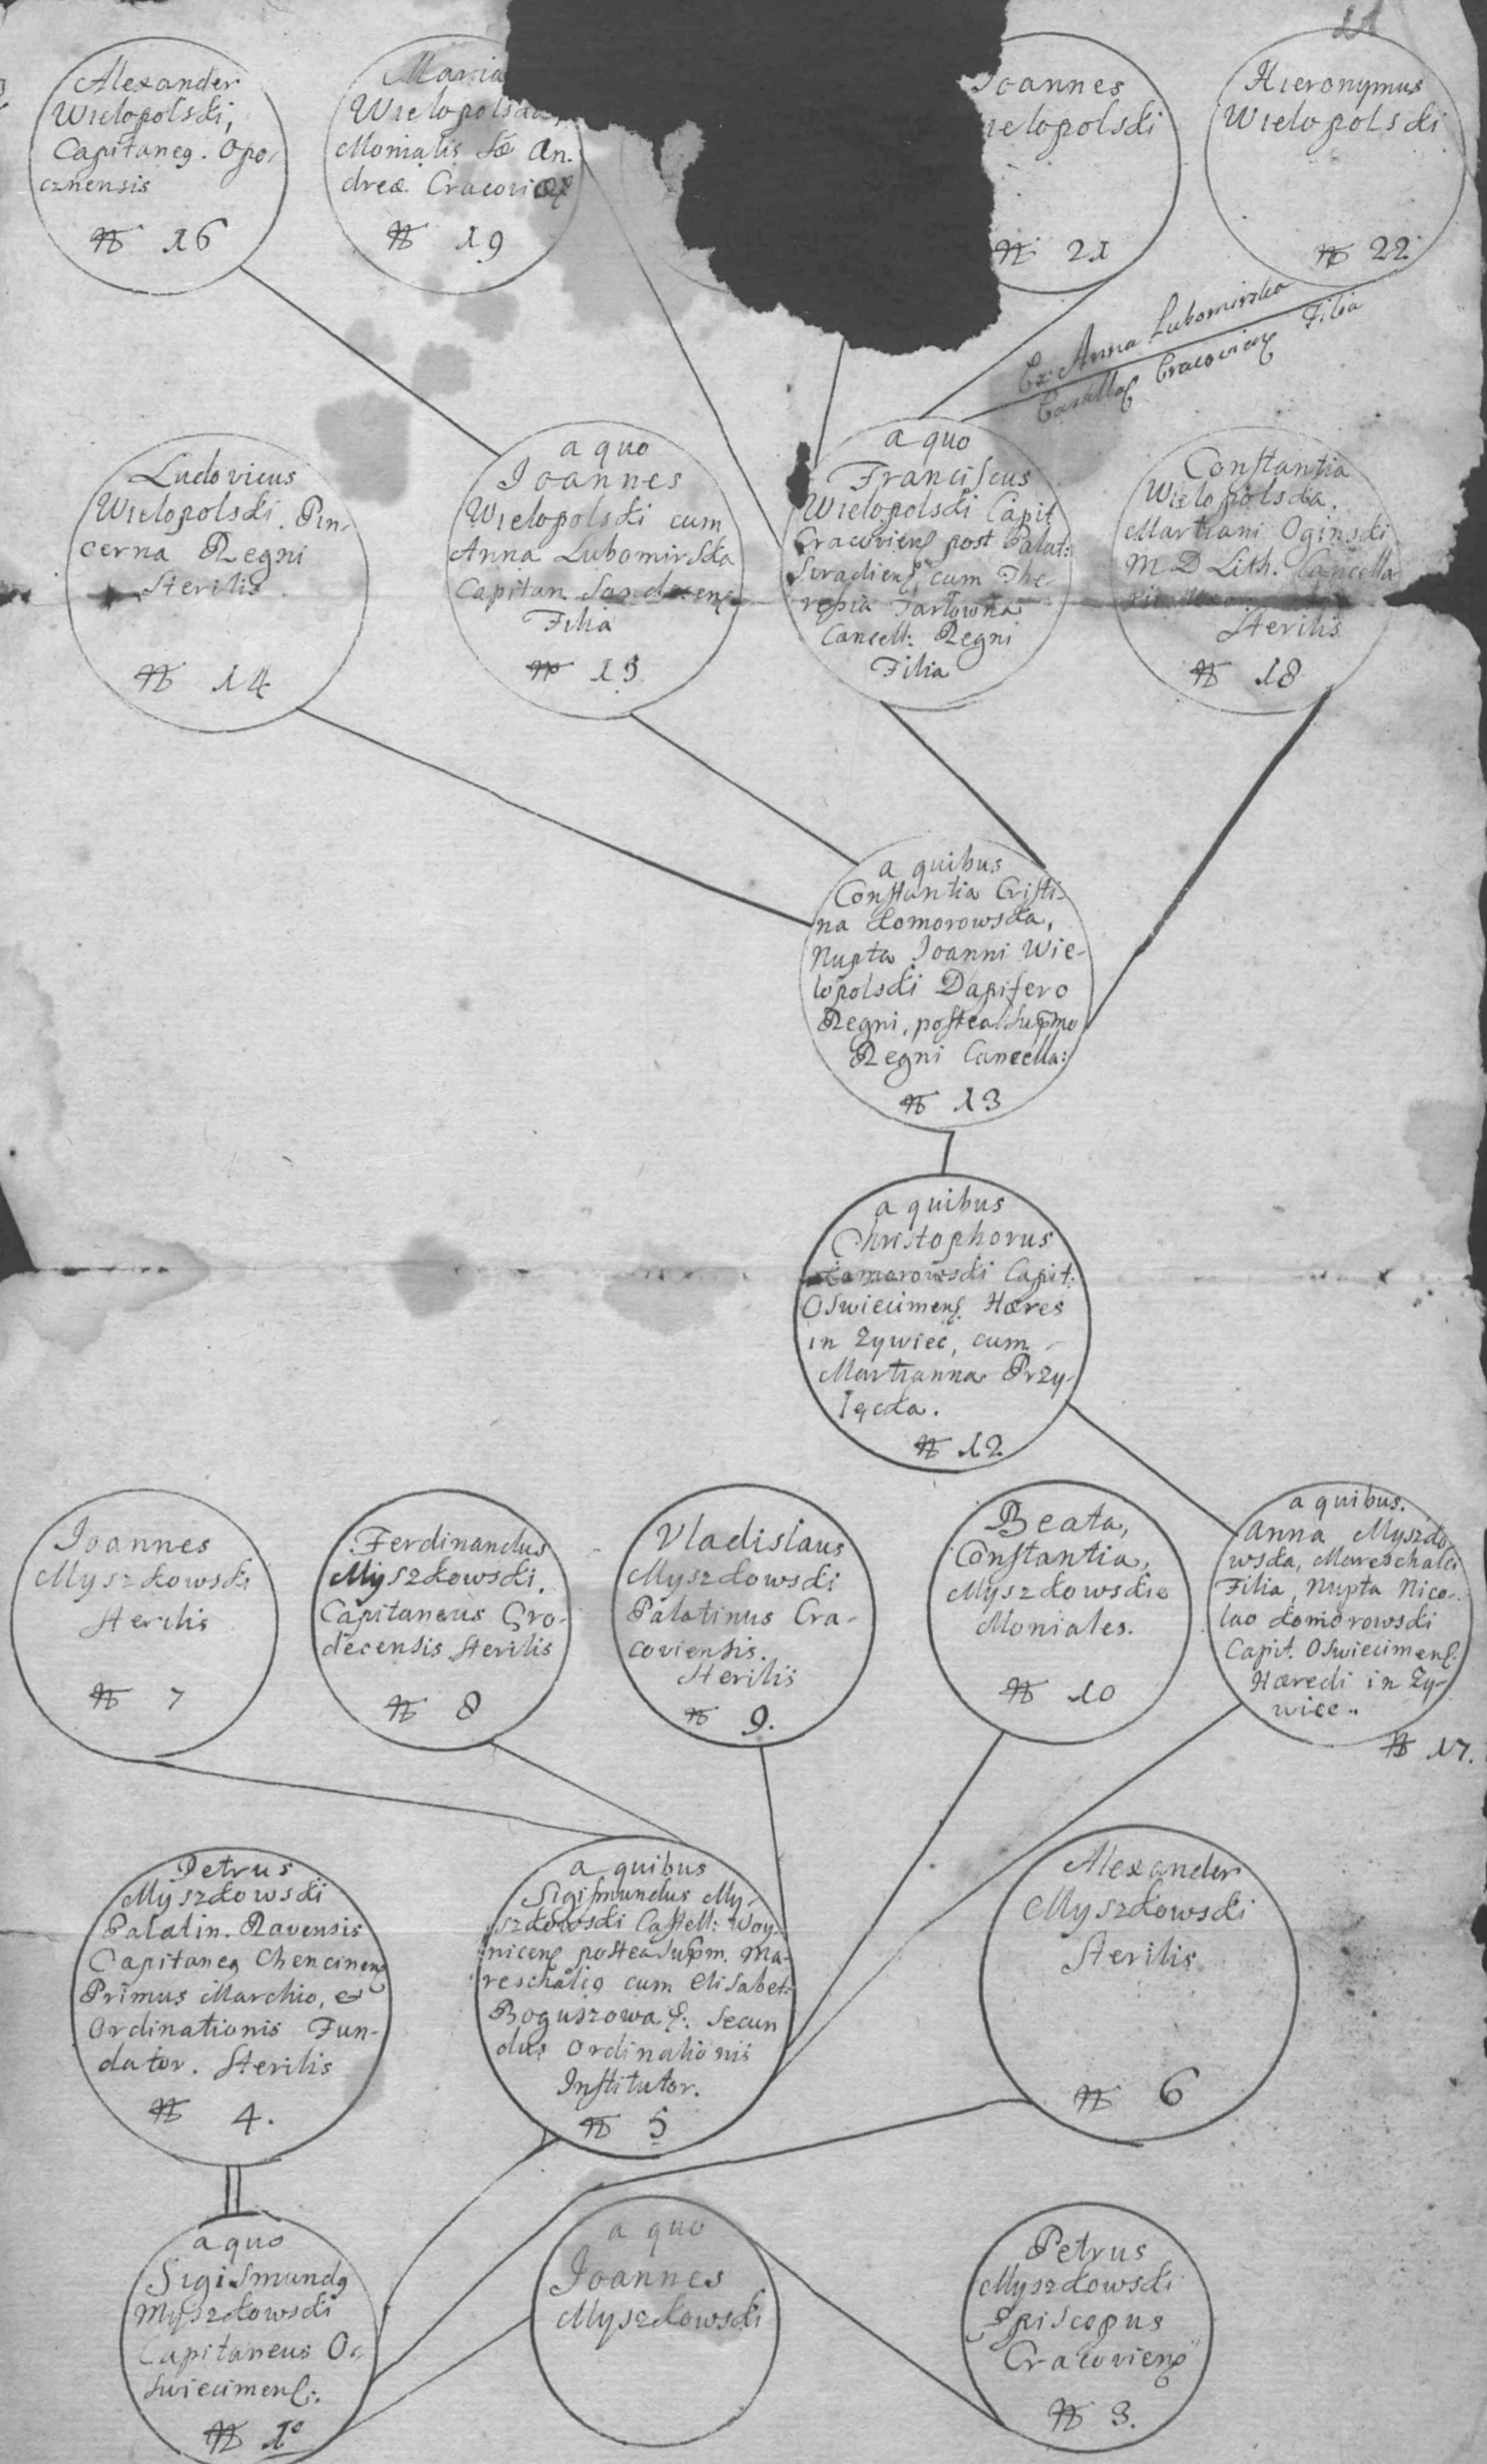 11
Alexander
Wielopolski,
Capitaneg. Opo-
cznensis
N 16
Maria
Wielopolska,
Monialis Sæ An-
dreæ Cracoviæ
N 19
Joannes
ielopolski
N 21
Hieronymus
Wielopolski
N 22
Ex Anna Lubomirska
Castellaę Cracovienę Filia
Ludovicus
Wielopolski. Pin-
cerna Regni
Sterilis
N 14
a quo
Joannes
Wielopolski cum
Anna Lubomirska
Capitan Sandecenę
Filia
N 15
a quo
Franciscus
Wielopolski Capit
Cracovienę post Palat:
Siradienę, cum The-
resia Tarłowna
Cancell: Regni
Filia
Constantia
Wielopolska,
Martiani Oginski
M D Lith. Cancella
Sterilis
N 18
a quibus
Constantia Cristi-
na Komorowska,
Nupta Joanni Wie-
lopolski Dapifero
Regni, postea Supmo
Regni Cancella:
N 13
a quibus
Christophorus
Komorowski Capit:
Oswiecimenę. Hæres
in Zywiec, cum
Martianna Przy-
łęcka.
N 12
Joannes
Myszkowski
Sterilis
N 7
Ferdinandus
Myszkowski.
Capitaneus Gro-
decensis Sterilis
N 8
Vladislaus
Myszkowski
Palatinus Cra-
coviensis.
Sterilis
N 9.
Beata,
Constantia,
Myszkowskie
Moniales.
N 10
a quibus.
Anna Myszko
wska, Mareschalci
Filia, Nupta Nico-
lao Komorowski
Capit. Oswiecimenę.
Hæredi in Zy-
wiec..
N 17.
Petrus
Myszkowski
Palatin. Ravensis
Capitaneg Chencinenę
Primus Marchio, &
Ordinationis Fun-
dator. Sterilis
N 4.
a quibus
Sigismundus My-
szkowski Castell: Woy-
nicenę postea Supm. Ma-
reschalig cum Elisabet:
Boguszowa &. Secun
dus Ordinationis
Institutor.
N 5
Alexander
Myszkowski
Sterilis
N 6
a quo
Sigismundg
Myszkowski
Capitaneus Os
swiecimenę:
N 1º
a quo
Joannes
Myszkowski
Petrus
Myszkowski
Episcopus
Cracovienę
N 3.